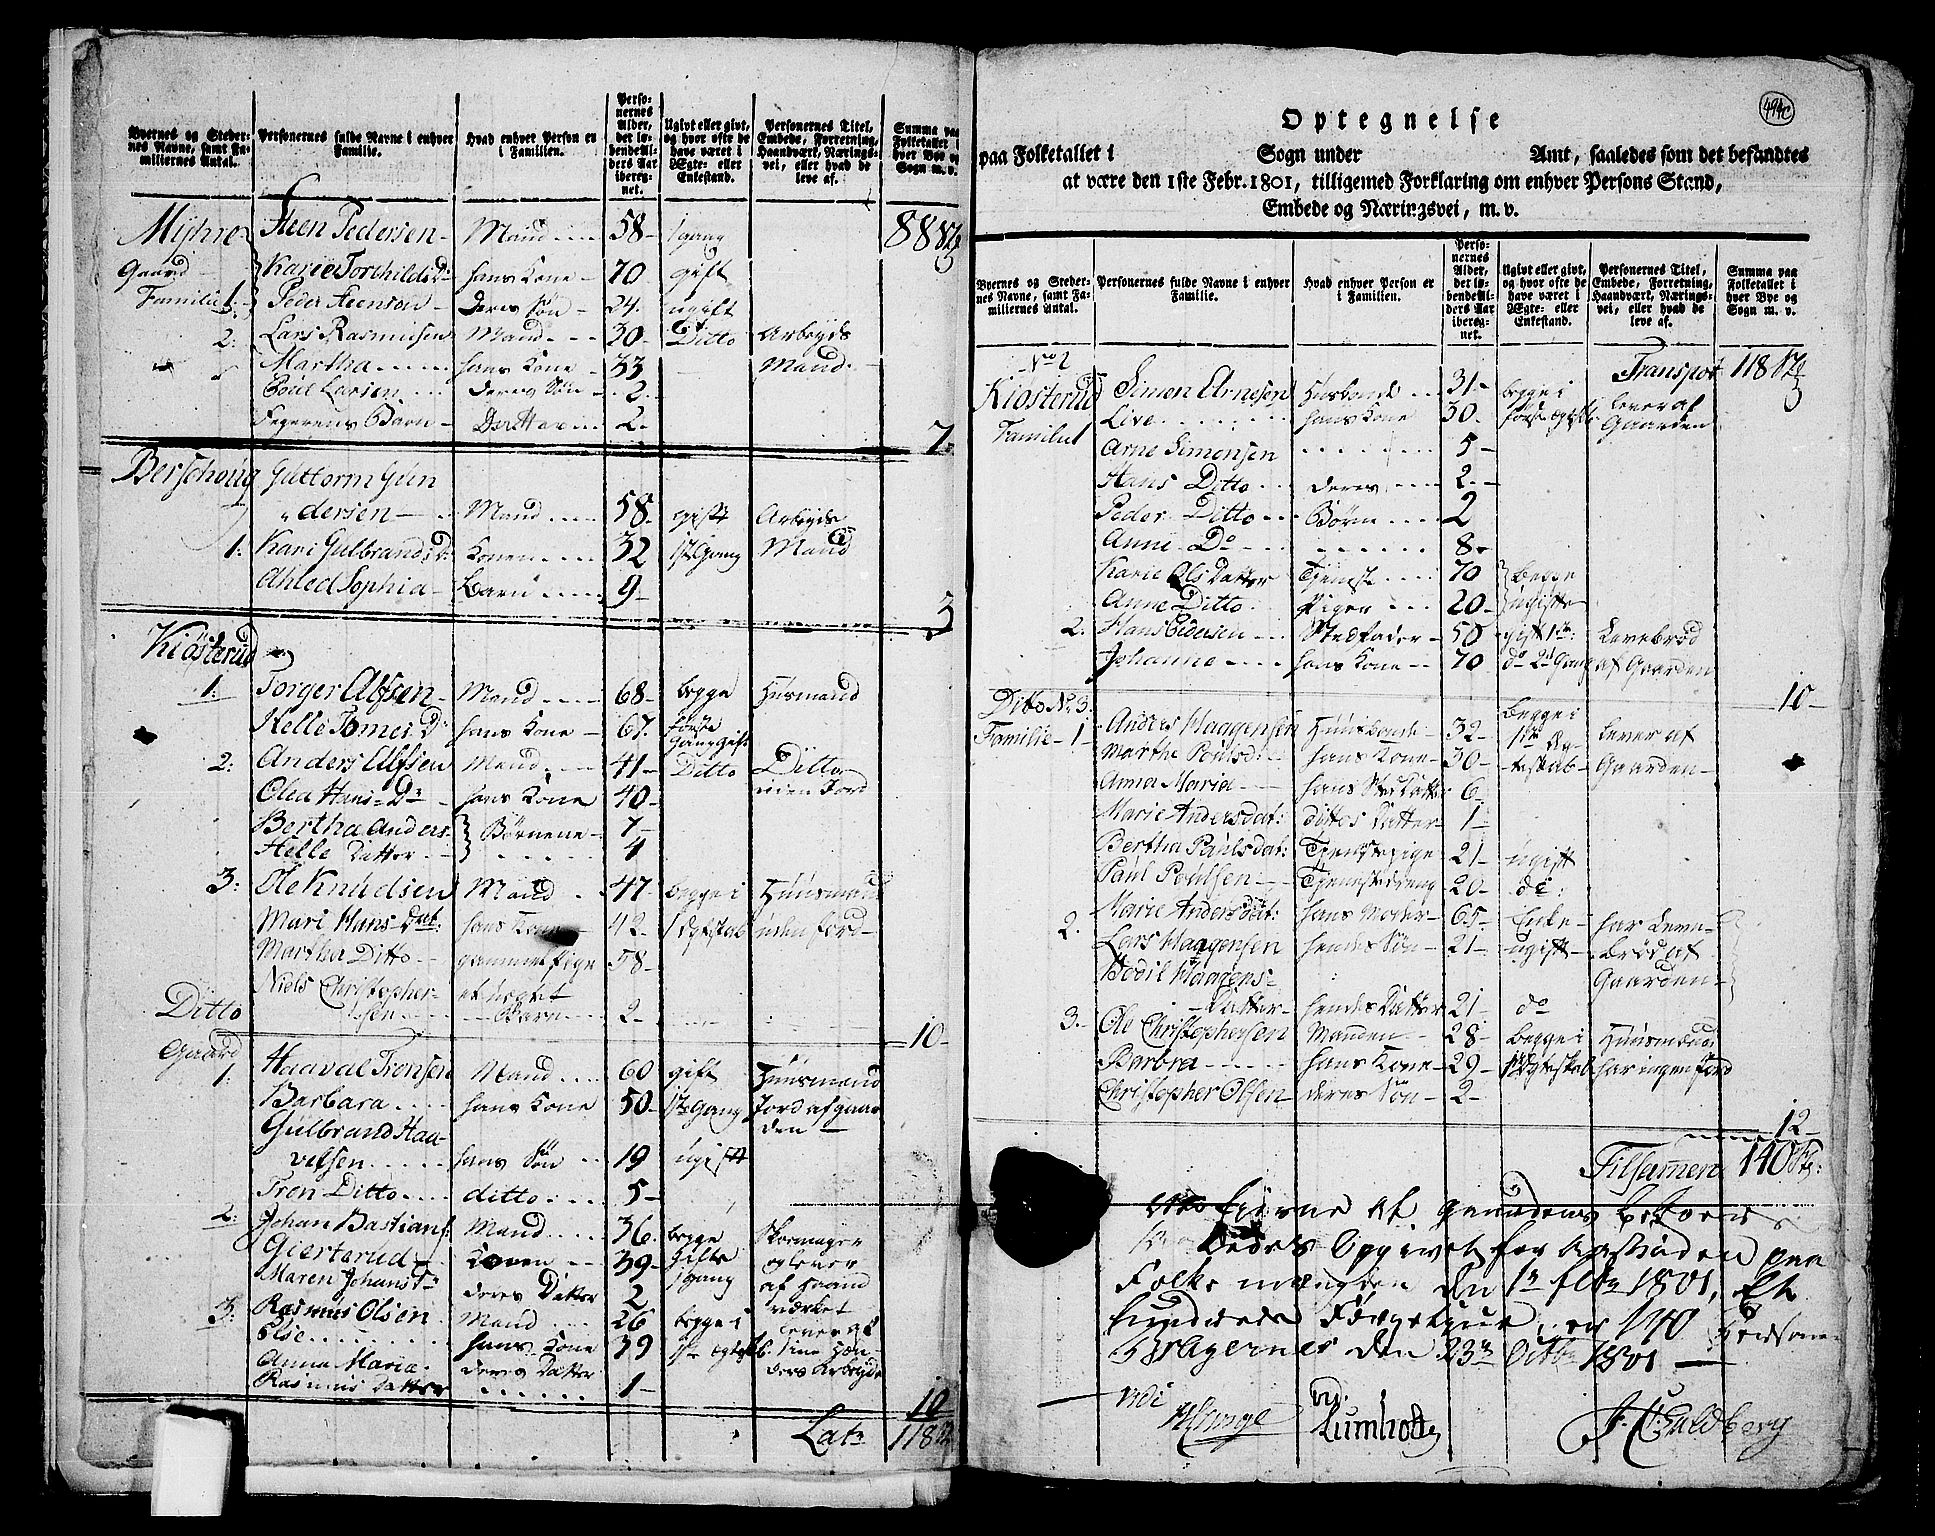 Byernes og Stedernes Navne, samt Familiernes Antal.
Personernes fulde Navne i enhver Familie.
Hvad enhver Person er i Familien.
Personernes Alder, det løbende Alders Aar iberegnet.
Ugivt eller givt, og hvor ofte de have været i Ægte- eller Enkestand.
Personernes Titel, Embede, Forretning, Haandværk, Næringsvei, eller hvad de leve af.
Summa paa Folketallet i hver Bye og Sogn m. v.
Myhre Steen Pedersen Mand 58 1 gang 88
Gaard Karie Torchilds Dr hans Kone 70 gift
Familie 1. Peder Steensøn Deres Søn 24 ugift
2. Lars Rasmusen Mand 30 Ditto Arbeyds
Martha hans Kone 33 Mand
Poul Larsen deres Søn 2
Barn Ditto 2
7
Berschoug Guttorm Gun
dersen Mand 58 gift Arbeyds
1. Kari Gulbrands Dr Konen 32 1st Gang Mand
Ahled Sophia Barn 9
3
Kiøsterud
1. Torger Alfsen Mand 68 begge Husmand
Helle Tomes Dr hans Kone 67 første Gang gift
2. Anders Alfsen Mand 41 Ditto Ditto
Olea Hans Dr hans Kone 40 uden Jord
Bertha Anders Børnene 7
Helle Datter 4
3. Ole Knudsen Mand 47 begge i Huusmand
Mari Hans Dat: hans Kone 42 1 Egteskab uden Jord
Martha Ditto gammel Pige 58
Niels Christopher
Ditto sen Barn 2
10
Gaard
1. Haaval Tronsen Mand 60 gift Huusmand
Barbara hans Kone 50 1ste Gang Jord af gaar
Gulbrand Haa den
velsen hans Søn 19 ugift
Tron Ditto ditto 5
2. Johan Bastians: Mand 36 begge Skomager
Gierterud Konen 39 gifte og lever
Maren Johans Dr deres Datter 2 1 gang af Haand
3. Rasmus Olsen Mand 26 begge i værket
Else hans Kone 39 1ste Egteskb lever af
Anna Maria deres Datter sine Hæn
Rasmus Datter 1 ders Arbeyde
10
Lats 118
494c
Optegnelse
paa Folketallet i Sogn under Amt, saaledes som det befandtes
at være den 1ste Febr. 1801, tilligemed Forklaring om enhver Persons Stand,
Embede og Næringsvei, m. v.
Byernes og Stedernes Navne, samt Familiernes Antal.
Personernes fulde Navne i enhver Familie.
Hvad enhver Person er i Familien.
Personernes Alder, det løbende Alders Aar iberegnet.
Ugivt eller givt, og hvor ofte de have været i Ægte- eller Enkestand.
Personernes Titel, Embede, Forretning, Haandværk, Næringsvei, eller hvad de leve af.
Summa paa Folketallet i hver Bye og Sogn m. v.
No 2 Transport 118
Kiøsterud Simon Arnesen Husbonde 31 begge i lever af
Familie 1 Live hans Kone 30 første Gaarden
Arne Simonsen 5
Hans Ditto deres 2
Peder Ditto Børn 2
Anne Do 8
Karie Ols Datter Tjeneste 70 begge
Anne Ditto Piger 20 ugifte
2. Hans Pedersen Stedfader 50 gift 1ste Levebrød
Johanne hans Kone 70 do 2d Gang af Gaarden
10
Ditto No 3.
Familie 1 Anders Haagensen Huusbonde 32 begge i lever af
Marthe Poulsd: hans Kone 30 1ste Eg Gaarden
Anna Maria hans Sted Datter 6 teskab
Marie Andersdat: dittos Datter 1
Bertha Paulsdat: Tjenstepige 21 ugift
Paul Poulsen Tjenestedreng 20 do:
2. Marie Andersdat: hans Moder 65 Enke har Leve
Lars Haagensen hendes Søn 21 ugift brød af
Bodil Haagens Gaarden
Datter hendes Datter 21 do
3. Ole Christophersen Manden 28 begge i Huusmand
Barbra hans Kone 29 1 Egteskab har ingen Jord
Christopher Olsen deres Søn 2
12
Tilsammen 140
Eierne af
Opgivet for
Folke mængden den 1ste Febr 1801, Et
Hundrede Fyrgetyve er 140 Personer
Bragernes den 23de Octbr 1801
vidi vid
Rumholtz Guldberg